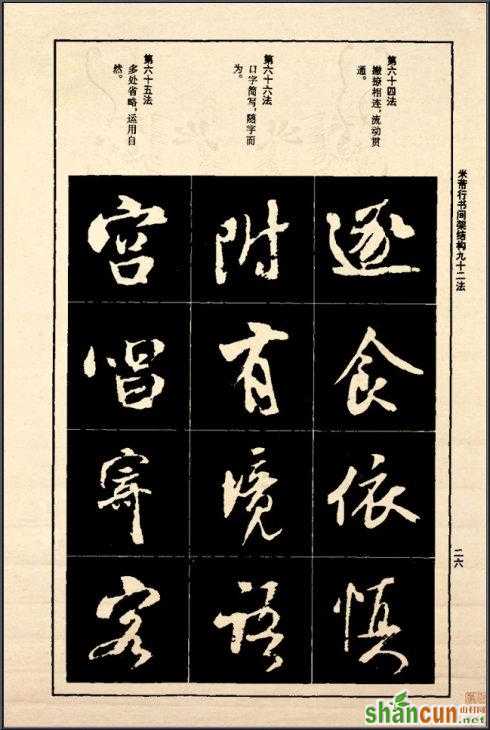 米芾行书间架结构九十二法
二六
第六十四法
撇捺相连，流动贯
通。
逐食依慎
第六十六法
口字简写，随字而
为。
附有境語
第六十五法
多处省略，运用自
然。
宫唱寄客
山村网
shancun
.net